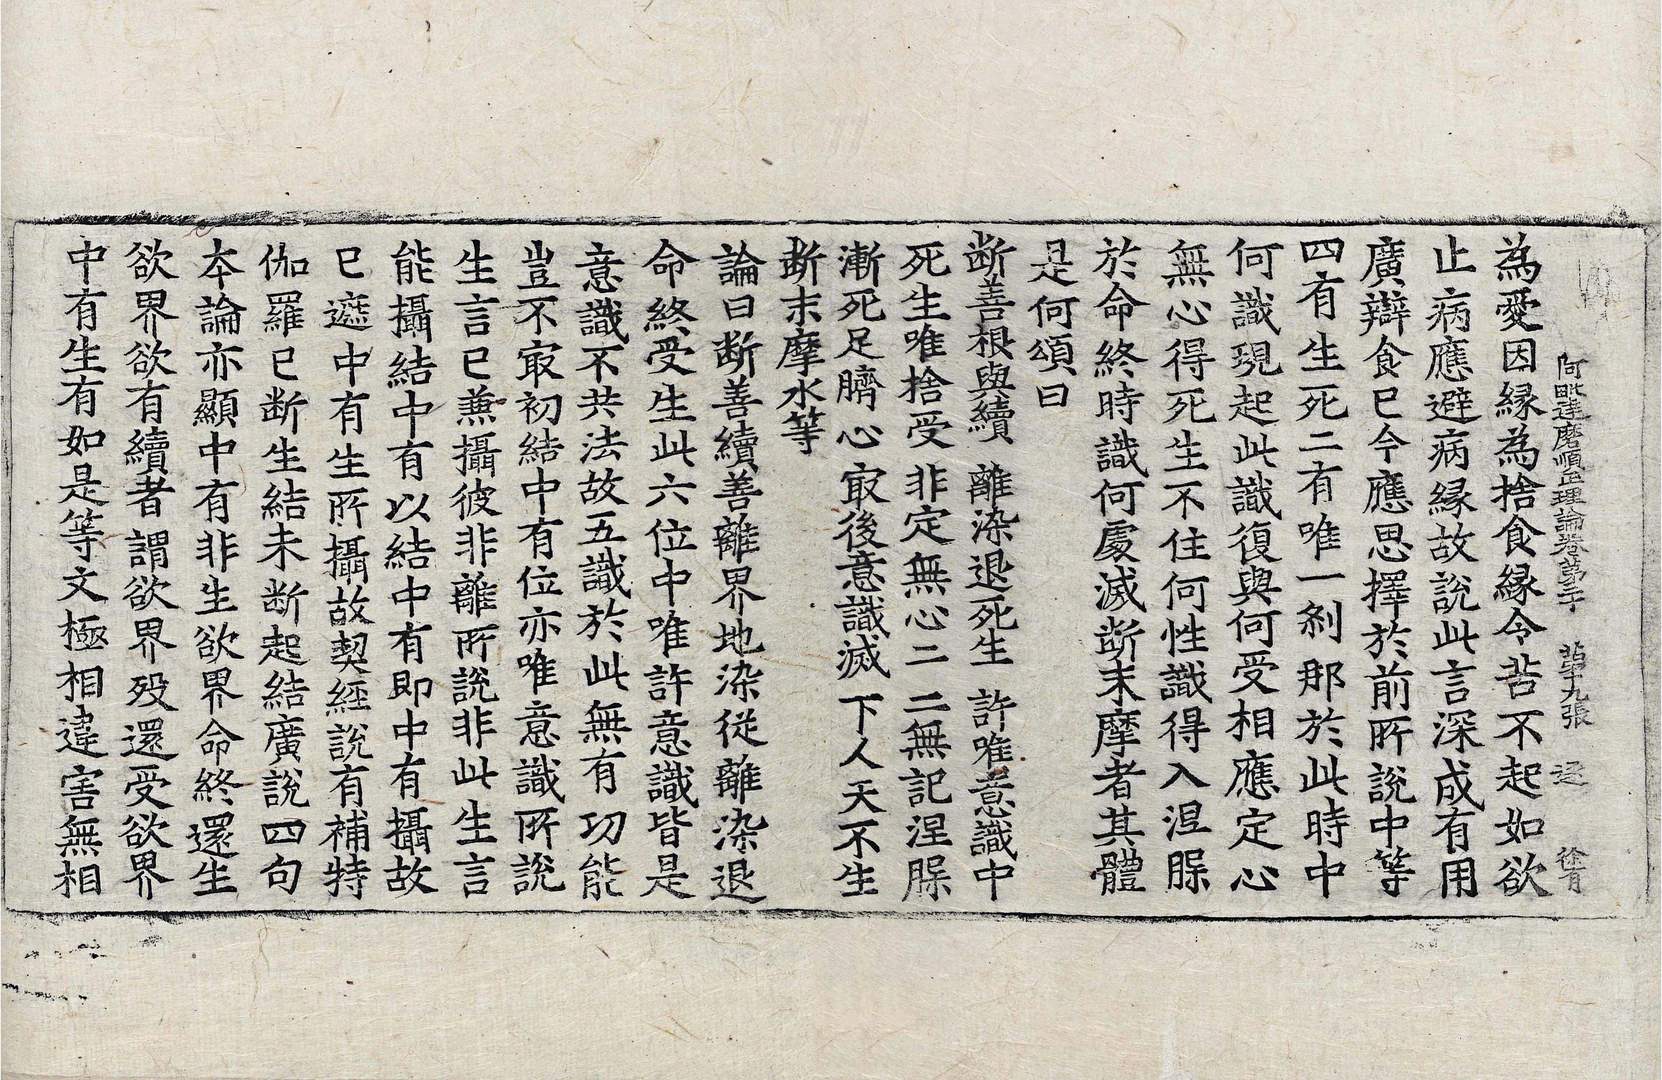 阿毗達磨順正理論卷第三十　苐十九張　逆　徐有
為愛因緣為捨食緣令苦不起如欲
止病應避病緣故說此言深成有用
廣辯食已今應思擇於前所說中等
四有生死二有唯一刹那於此時中
何識現起此識復與何受相應定心
無心得死生不住何性識得入涅腂
於命終時識何處滅断末摩者其體
是何頌曰
断善根與續　離染退死生　許唯意識中
死生唯捨受　非定無心二　二無記涅腂
漸死足臍心　㝡後意識滅　下人天不生
断末摩水等
論曰断善續善離界地染從離染退
命終受生此六位中唯許意識皆是
意識不共法故五識於此無有功能
豈不㝡初結中有位亦唯意識所說
生言已兼攝彼非離所說非此生言
能攝結中有以結中有即中有攝故
已遮中有生所攝故契經說有補特
伽羅已断生結未断起結廣說四句
本論亦顯中有非生欲界命終還生
欲界欲有續者謂欲界歿還受欲界
中有生有如是等文極相違害無相